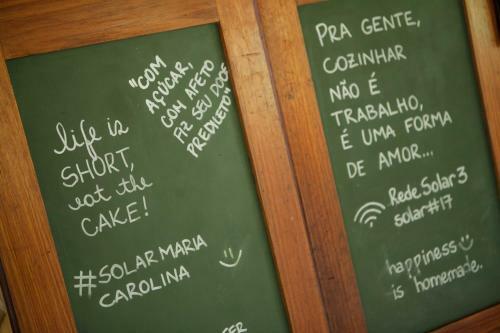 life is
SHORT,
eat the
CAKE!
"COM
AÇÚCAR,
COM AFETO
FIZ SEU DOCE
PREDILETO"
#SOLAR MARIA
CAROLINA
PRA GENTE,
COZINHAR
NÃO É
TRABALHO,
É UMA FORMA
DE AMOR...
Rede Solar 3
solar#17
happiness
is homemade.